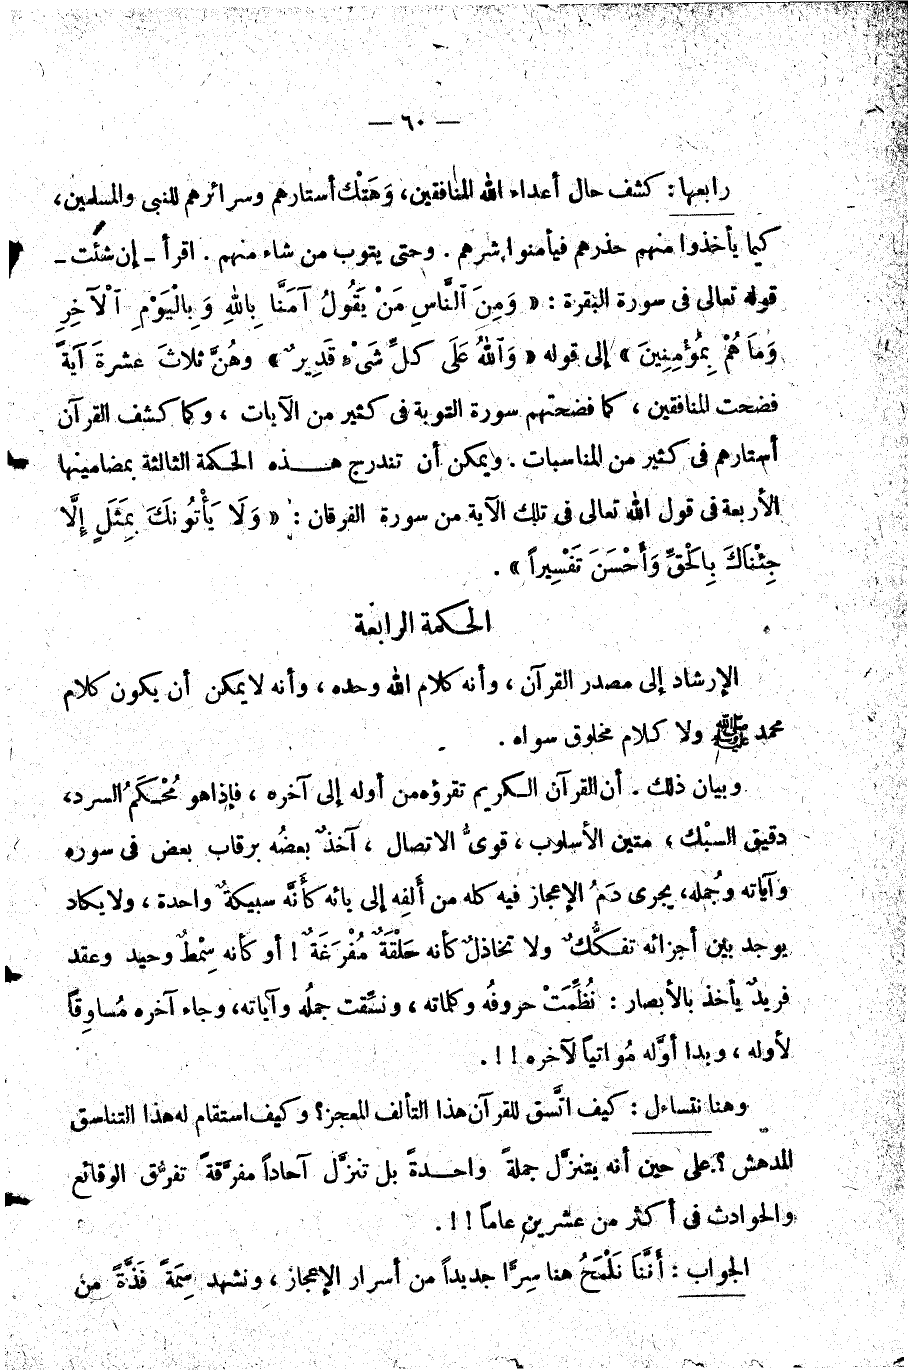 — ٦٠ —
رابعها: كشف حال أعداء الله المنافقين، وَهَتْك أستارهم وسرائرهم للنبى والمسلمين،
كيما يأخذوا منهم حذرهم فيأمنوا شرهم. وحتى يتوب من شاء منهم. اقرأ ـ إن شئت ـ
قوله تعالى فى سورة البقرة: « وَمِنَ ٱلنَّاسِ مَنْ يَقُولُ آمَنَّا بِاللهِ وَبِالْيَوْمِ ٱلْآخِرِ
وَمَا هُمْ بِمُؤْمِنِينَ » إلى قوله « وَٱللهُ عَلَى كلِّ شَىْءٍ قَدِيرٌ » وهُنَّ ثلاثَ عشرةَ آيةً
فضحت المنافقين، كما فضحتهم سورة التوبة فى كثير من الآيات، وكما كشف القرآن
أستارهم فى كثير من المناسبات. ويمكن أن تندرج هـــذه الحكمة الثالثة بمضامينها
الأربعة فى قول الله تعالى فى تلك الآية من سورة الفرقان: « وَلَا يَأْتُونكَ بِمَثَلٍ إِلَّا
جِئْنَاكَ بِالْحَقِّ وَأَحْسَنَ تَفْسِيراً ».
الحكمة الرابعة
الإرشاد إلى مصدر القرآن، وأنه كلام الله وحده، وأنه لا يمكن أن يكون كلام
محمد ﷺ ولا كلام مخلوق سواه.
وبيان ذلك. أن القرآن الـكريم تقرؤه من أوله إلى آخره، فإذا هو مُحْـكَمُ السرد،
دقيق السبْك؛ متين الأسلوب، قوىُّ الاتصال، آخذٌ بعضُه برقاب بعض فى سوره
وآياته وجُمله، يجرى دمُ الإعجاز فيه كله من أَلفِه إلى يائه كأنَّه سبيكةٌ واحدة، ولا يكاد
يوجد بين أجزائه تفـكُّك ٌ ولا تخاذلٌ كأنه حَلْقَةٌ مُفْرَغَةٌ! أو كأنه سِمْطٌ وحيد وعقد
فريدٌ يأخذ بالأبصار: نُظِّمَتْ حروفُه وكلماته، ونسِّقت جملُه وآياته، وجاء آخره مُساوِقًا
لأوله، وبدا أوَّله مُواتياً لآخره!!.
وهنا نتساءل: كيف اتَّسق للقرآن هذا التألف المعجز؟ وكيف استقام له هذا التناسق
المدهش؟ على حين أنه يتنزَّل جملةً واحـــدةً بل تنزَّل آحاداً مفرَّقةً تفرُّق الوقائع
والحوادث فى أكثر من عشرين عاماً!!.
الجواب: أنَّنَا نَلْمَحُ هنا سِرًّا جديداً من أسرار الإعجاز، ونشهد سِمَةً فَذَّةً من